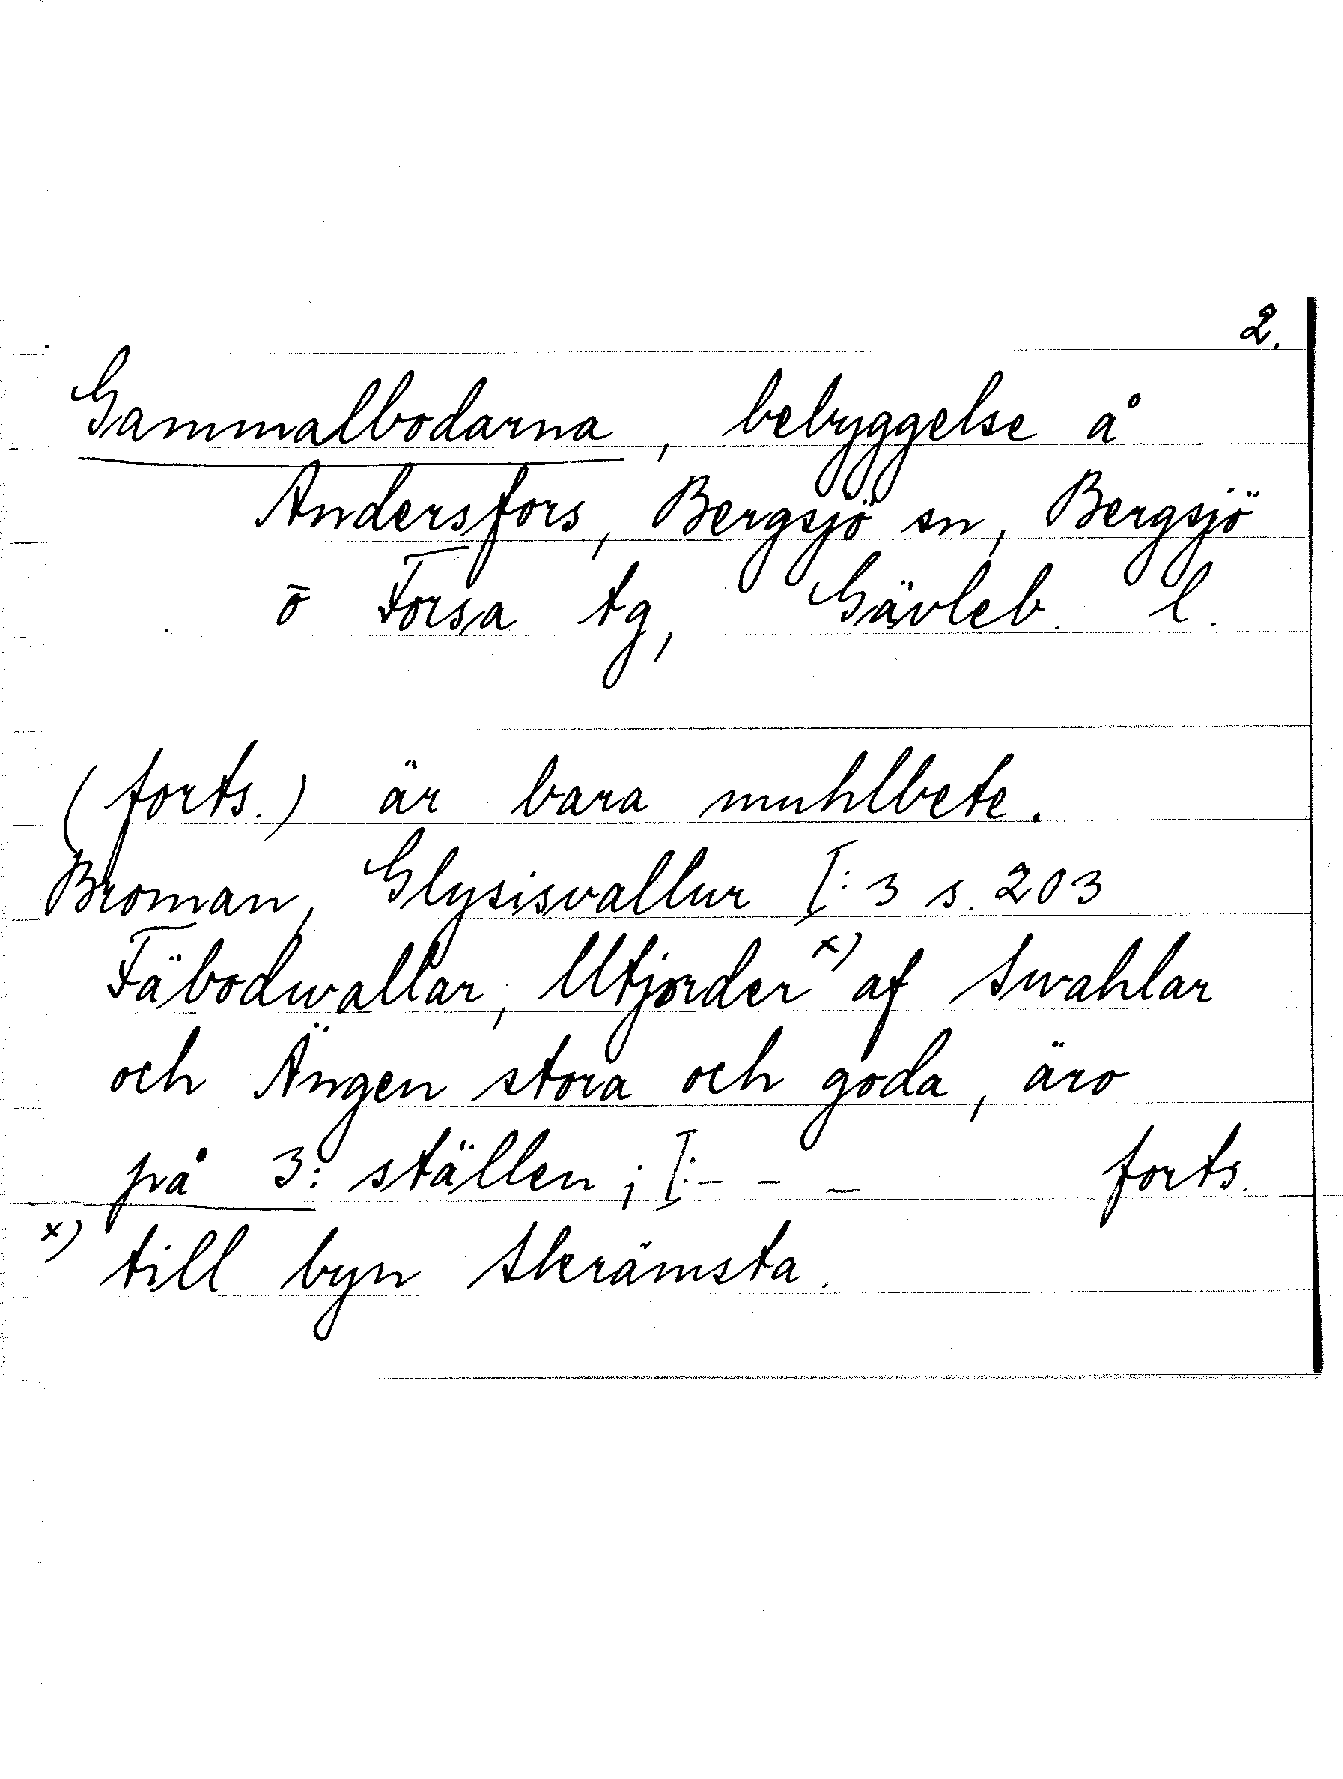 2.
Gammalbodarna, bebyggelse å
Andersfors, Bergsjö sn, Bergsjö
o Forsa tg, Gävleb. l.
(forts.) är bara muhlbete.
Broman, Glysisvallur I:3 s. 203
Fäbodwallar, Utjorder x) af Swahlar
och Ängen stora och goda, äro
på 3: ställen; [:- - - forts.
x) till byn Skrämsta.